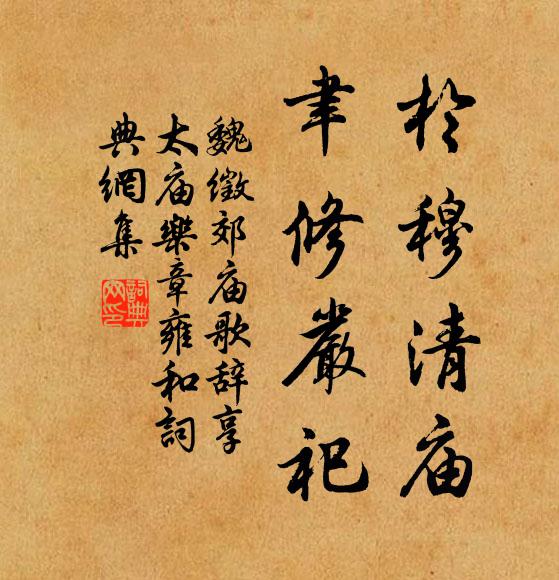 於穆清庙
聿修嚴祀
魏徵郊庙歌辞享
太庙樂章雍和詞
典網集
詞典網印